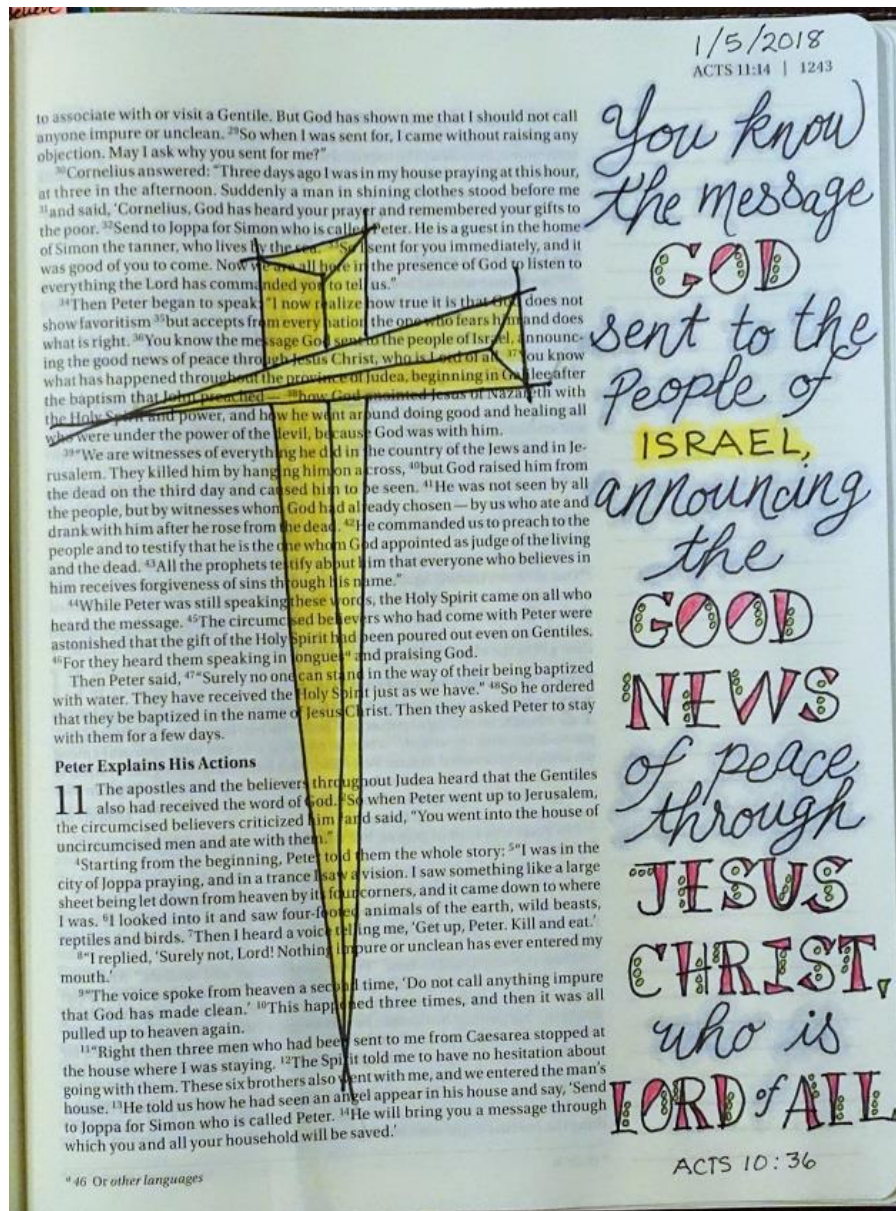 believe
1/5/2018
ACTS 11:14 | 1243
to associate with or visit a Gentile. But God has shown me that I should not call
anyone impure or unclean. ²⁹So when I was sent for, I came without raising any
objection. May I ask why you sent for me?”
³⁰Cornelius answered: “Three days ago I was in my house praying at this hour,
at three in the afternoon. Suddenly a man in shining clothes stood before me
³¹and said, ‘Cornelius, God has heard your prayer and remembered your gifts to
the poor. ³²Send to Joppa for Simon who is called Peter. He is a guest in the home
of Simon the tanner, who lives by the sea.’ ³³So I sent for you immediately, and it
was good of you to come. Now we are all here in the presence of God to listen to
everything the Lord has commanded you to tell us.”
³⁴Then Peter began to speak: “I now realize how true it is that God does not
show favoritism ³⁵but accepts from every nation the one who fears him and does
what is right. ³⁶You know the message God sent to the people of Israel, announc-
ing the good news of peace through Jesus Christ, who is Lord of all. ³⁷You know
what has happened throughout the province of Judea, beginning in Galilee after
the baptism that John preached — ³⁸how God anointed Jesus of Nazareth with
the Holy Spirit and power, and how he went around doing good and healing all
who were under the power of the devil, because God was with him.
³⁹“We are witnesses of everything he did in the country of the Jews and in Je-
rusalem. They killed him by hanging him on a cross, ⁴⁰but God raised him from
the dead on the third day and caused him to be seen. ⁴¹He was not seen by all
the people, but by witnesses whom God had already chosen — by us who ate and
drank with him after he rose from the dead. ⁴²He commanded us to preach to the
people and to testify that he is the one whom God appointed as judge of the living
and the dead. ⁴³All the prophets testify about him that everyone who believes in
him receives forgiveness of sins through his name.”
⁴⁴While Peter was still speaking these words, the Holy Spirit came on all who
heard the message. ⁴⁵The circumcised believers who had come with Peter were
astonished that the gift of the Holy Spirit had been poured out even on Gentiles.
⁴⁶For they heard them speaking in tongues ᵃ and praising God.
Then Peter said, ⁴⁷“Surely no one can stand in the way of their being baptized
with water. They have received the Holy Spirit just as we have.” ⁴⁸So he ordered
that they be baptized in the name of Jesus Christ. Then they asked Peter to stay
with them for a few days.
Peter Explains His Actions
11 The apostles and the believers throughout Judea heard that the Gentiles
also had received the word of God. ²So when Peter went up to Jerusalem,
the circumcised believers criticized him ³and said, “You went into the house of
uncircumcised men and ate with them.”
⁴Starting from the beginning, Peter told them the whole story: ⁵“I was in the
city of Joppa praying, and in a trance I saw a vision. I saw something like a large
sheet being let down from heaven by its four corners, and it came down to where
I was. ⁶I looked into it and saw four-footed animals of the earth, wild beasts,
reptiles and birds. ⁷Then I heard a voice telling me, ‘Get up, Peter. Kill and eat.’
⁸“I replied, ‘Surely not, Lord! Nothing impure or unclean has ever entered my
mouth.’
⁹“The voice spoke from heaven a second time, ‘Do not call anything impure
that God has made clean.’ ¹⁰This happened three times, and then it was all
pulled up to heaven again.
¹¹“Right then three men who had been sent to me from Caesarea stopped at
the house where I was staying. ¹²The Spirit told me to have no hesitation about
going with them. These six brothers also went with me, and we entered the man’s
house. ¹³He told us how he had seen an angel appear in his house and say, ‘Send
to Joppa for Simon who is called Peter. ¹⁴He will bring you a message through
which you and all your household will be saved.’
ᵃ 46 Or other languages
You know
the message
GOD
sent to the
People of
ISRAEL,
announcing
the
GOOD
NEWS
of peace
through
JESUS
CHRIST,
who is
LORD of ALL
ACTS 10:36